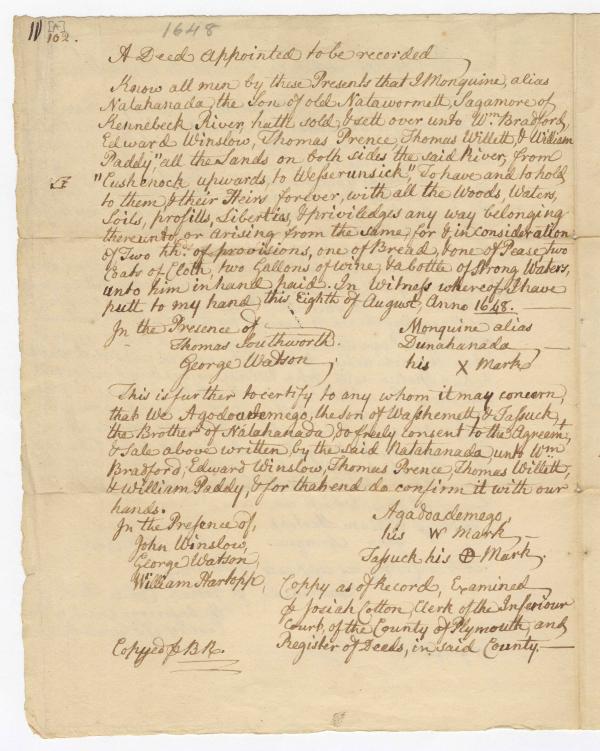 11 [A] 102.
1648
A Deed appointed to be recorded
Know all men by these Presents that I Monquine, alias
Natahanada, the Son of old Natawormett, Sagamore of
Kennebeck River, hath sold, & sett over unto Wm. Bradford,
Edward Winslow, Thomas Prence, Thomas Willett, & William
Paddy, "all the Lands on both sides, the said River, from
"Cushenock upwards, to Wesserunsick," To have and to hold
to them & their Heirs forever, with all the Woods, Waters,
Soils, profitts, Liberties, & priviledges any way belonging
thereunto, or arising from the same, for & in consideration
of Two hhds. of provisions, one of Bread, & one of Pease, two
Coats of Cloth, two Gallons of wine, & a bottle of Strong Waters,
unto him in hand paid. In Witness whereof I have
putt to my hand, this Eighth of August, Anno 1648.
In the Presence of Monquine alias
Thomas Southworth. Dunahanada
George Watson his X Mark
This is further to certify to any whom it may concern,
that We Agodoademego, the son of Washemett, & Tassuck,
the Brother of Natahanada, do freely consent to the Agreemt,
& Sale above written, by the said Natahanada, unto Wm
Bradford, Edward Winslow, Thomas Prence, Thomas Willett,
& William Paddy, & for that end do confirm it with our
hands.
In the Presence of, Agadoademego,
John Winslow, his W Mark
George Watson, Tassuck his Mark.
William Hartopp,
Coppy as of Record, Examined
p Josiah Cotton, Clerk of the Inferiour
Court, of the County of Plymouth, and
Copyed p B R. Register of Deeds, in said County.